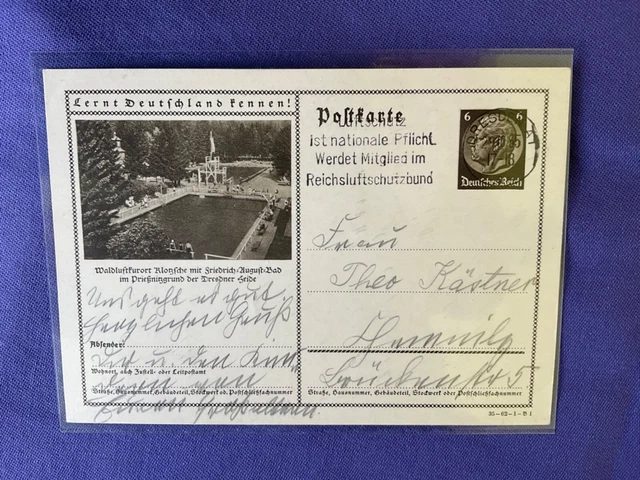 Lernt Deutschland kennen!
Postkarte
Luftschutz
ist nationale Pflicht
Werdet Mitglied im
Reichsluftschutzbund
6 6
Deutsches Reich
DRESDEN
Waldluftkurort Klotzsche mit Friedrich-August-Bad
im Prießnitzgrund der Dresdner Heide
Uns geht es gut
Herzlichen Gruß
Absender:
Dir u. den Kin-
Wohnort, auch Zustell- oder Leitpostamt
dern von
Straße, Hausnummer, Gebäudeteil, Stockwerk od. Postschließfachnummer
Frau
Theo Kästner
Chemnitz
Brückenstr 5
Straße, Hausnummer, Gebäudeteil, Stockwerk oder Postschließfachnummer
35-62-1-B1